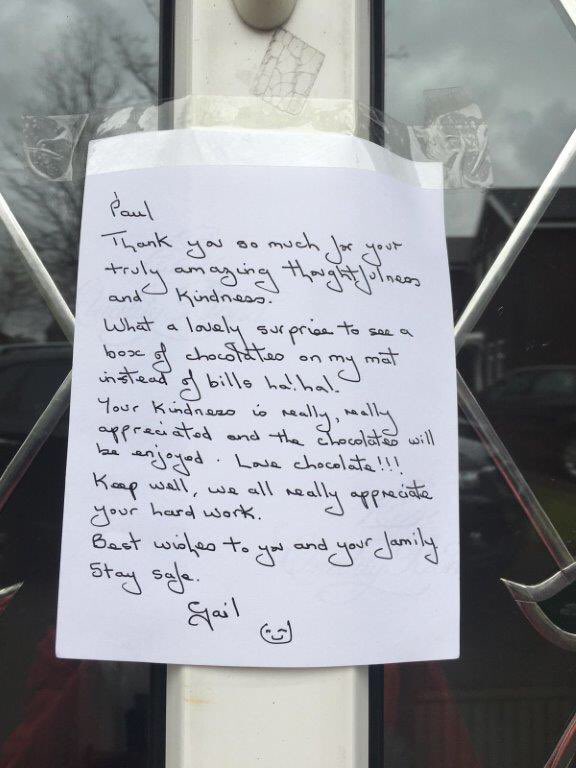 Paul
Thank you so much for your
truly amazing thoughtfulness
and Kindness.
What a lovely surprise to see a
box of chocolates on my mat
instead of bills ha!ha!
Your Kindness is really, really
appreciated and the chocolates will
be enjoyed. Love chocolate!!!
Keep well, we all really appreciate
your hard work.
Best wishes to you and your family
Stay safe.
Gail